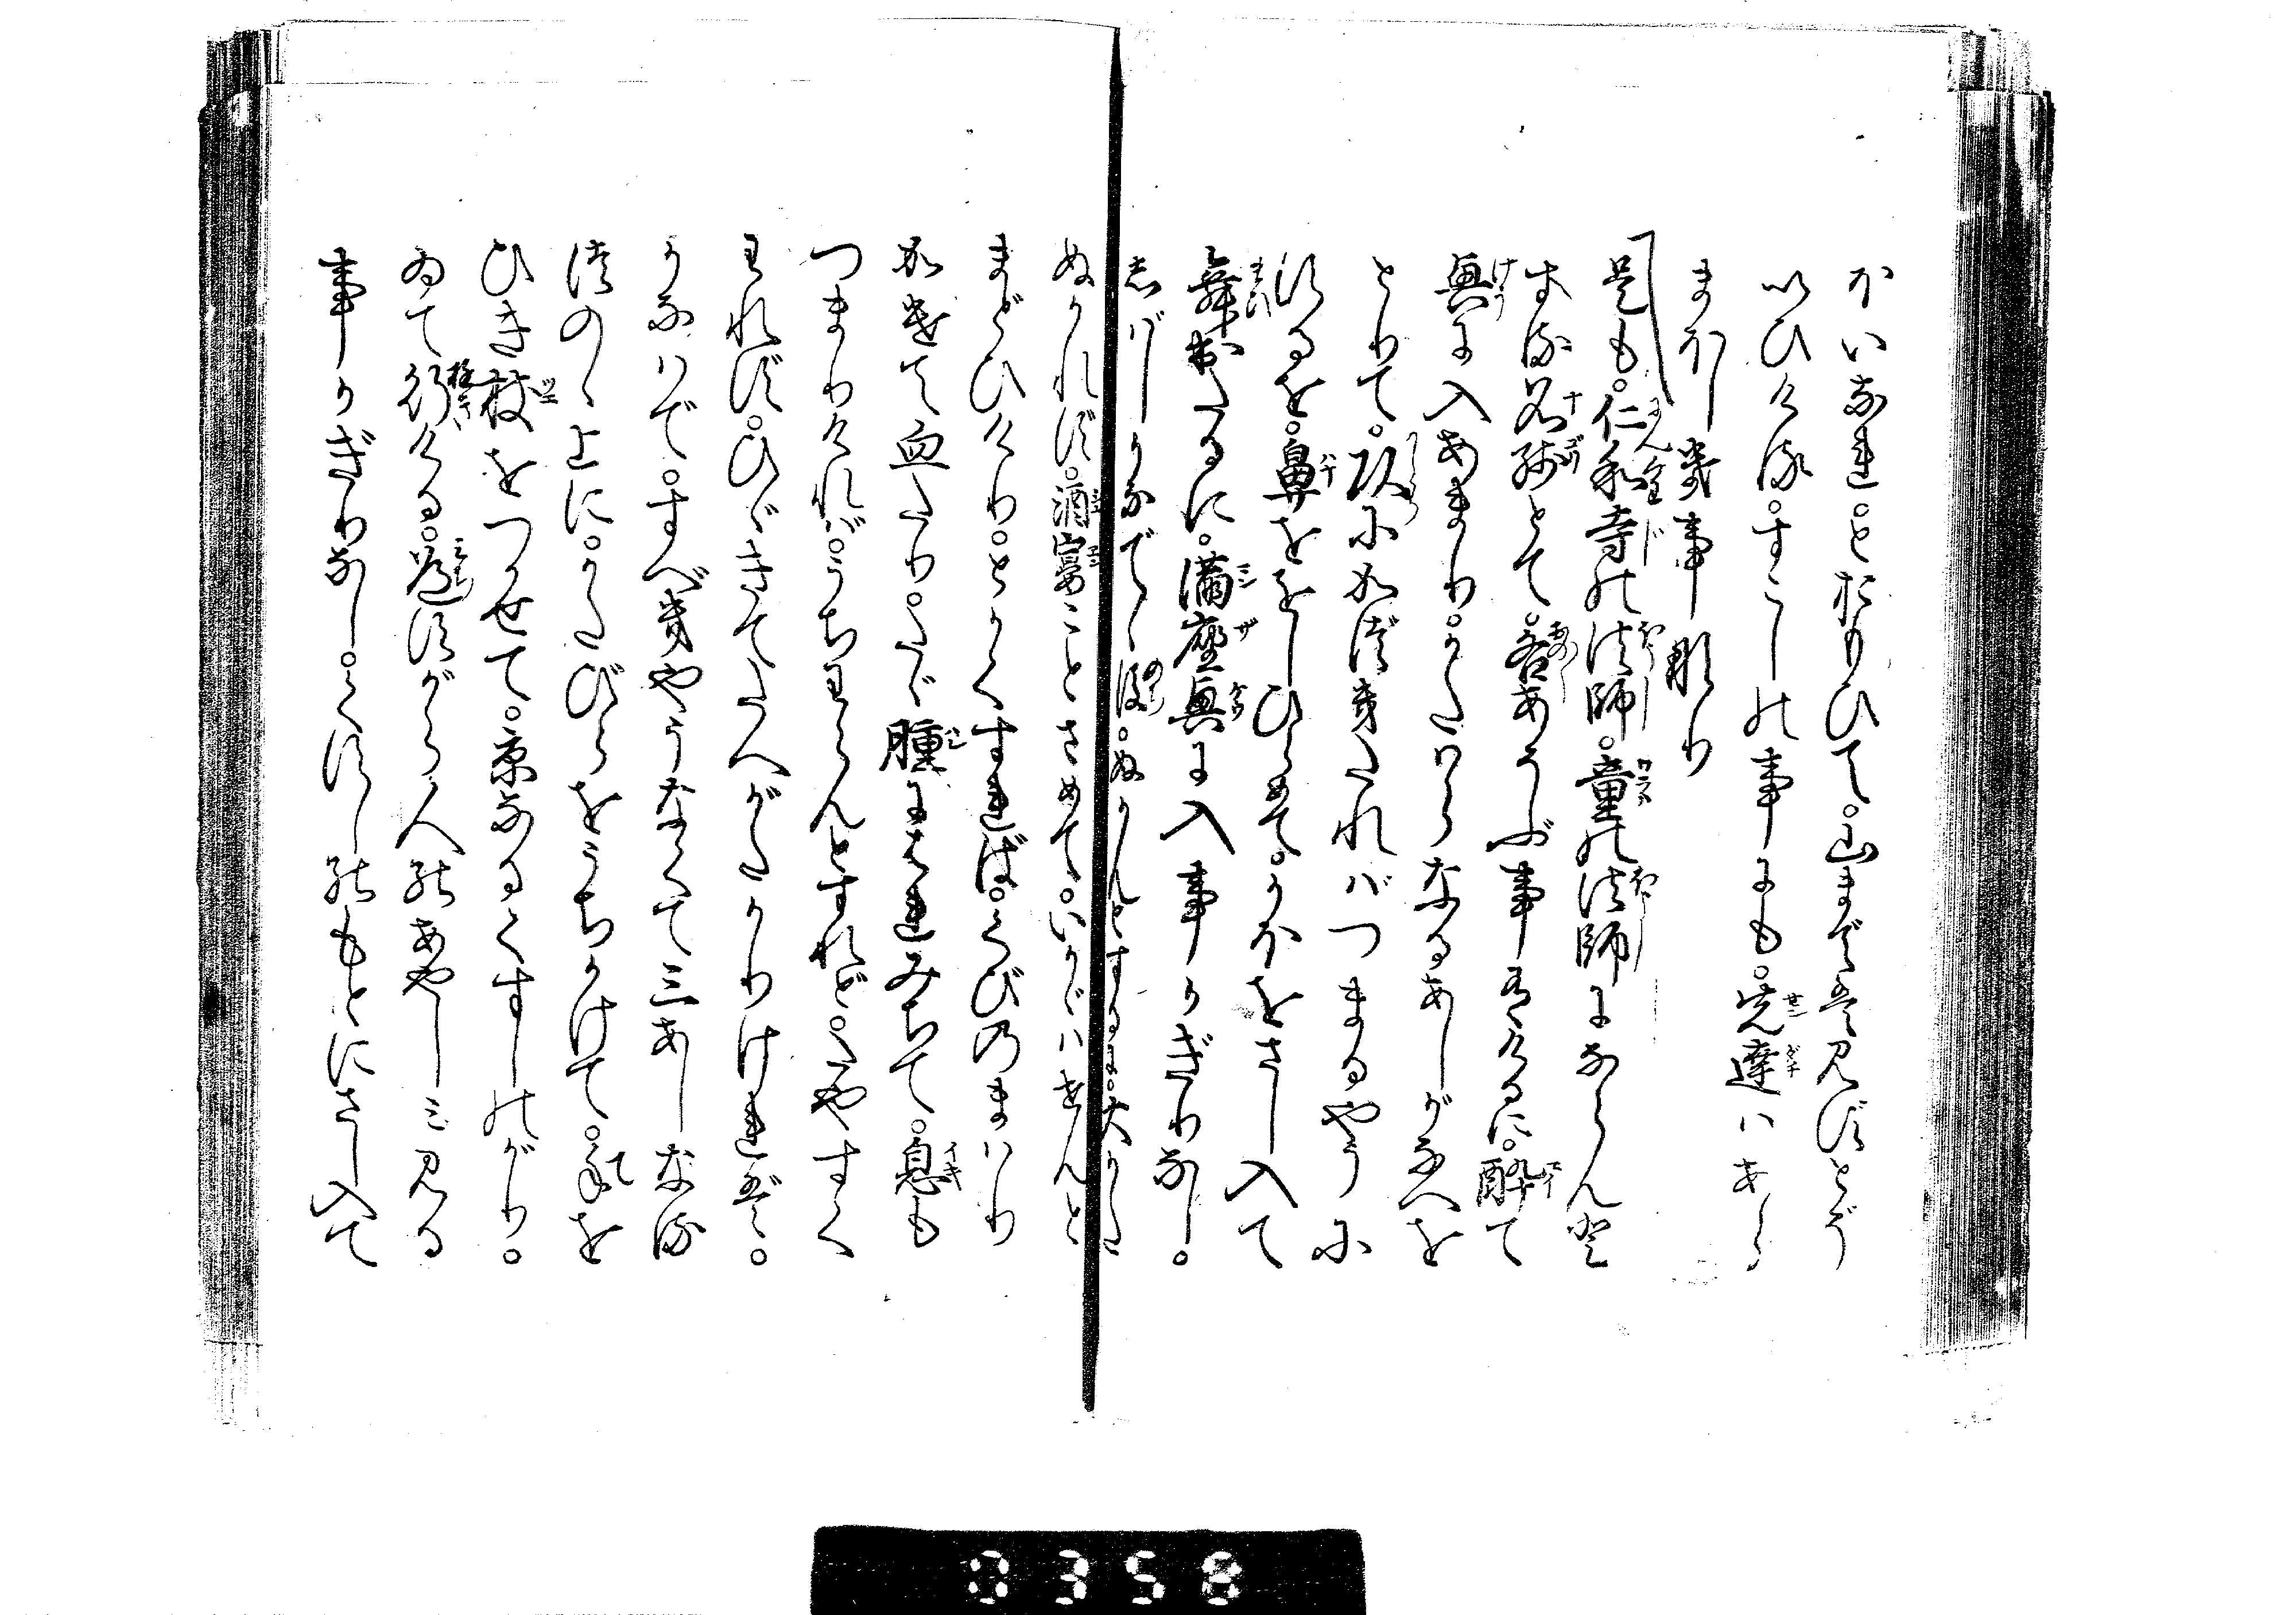 ほいなれ。と おもひて。山まで は見ずとぞ
いひける。すこしの事にも。先達はあら
まほしき事なり
是も。仁和寺の法師。童の法師にならんと
する名残とて。各あそぶ事有けるに。酔て
興に入あまり。かたはらなるあしがなへを
とりて。頭にかづきたれば つまるやうに
するを。鼻ををしひらめて。かほをさし入て
舞出たるに。満座興に入事かぎりなし。
しばしかなでゝ後。ぬかんとするに。大かた
ぬかれず。酒宴ことさめて。いかゞはせんと
まどひけり。とかくすれば。くびのまはり
かけて血たり。たゞ腫にはれみちて。息も
つまりければ。うちわらんとすれど。たやすく
われず。ひゞきてたへがたかりければ。
かなはで。すべきやうなくて三あしなる
つのゝ上に。かたびらをうちかけて。手を
ひき杖をつかせて。京なるくすしのがり。
ゐて行ける。道すがら人のあやしミ見る
事かぎりなし。くすしのもとにさし入て
0358